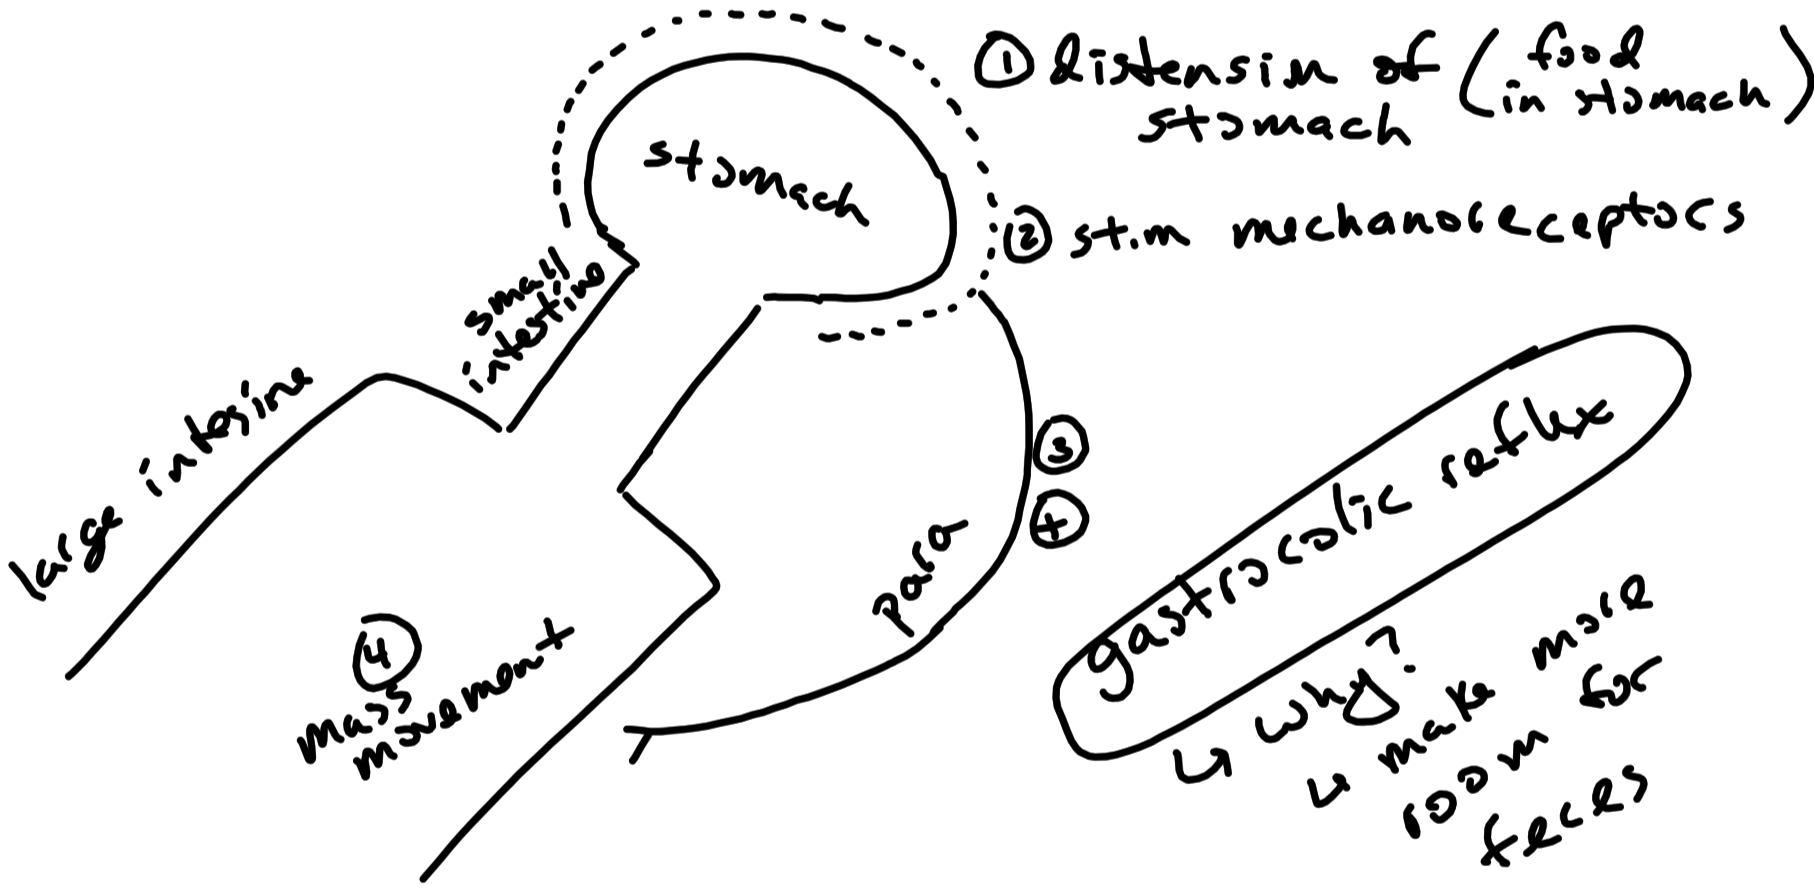 ① distension of (food
stomach in stomach)
stomach
② stim mechanoreceptors
small
intestine
large intesine
③
+
para
④
mass
movement
gastrocolic reflux
↳ why?
↳ make more
room for
feces